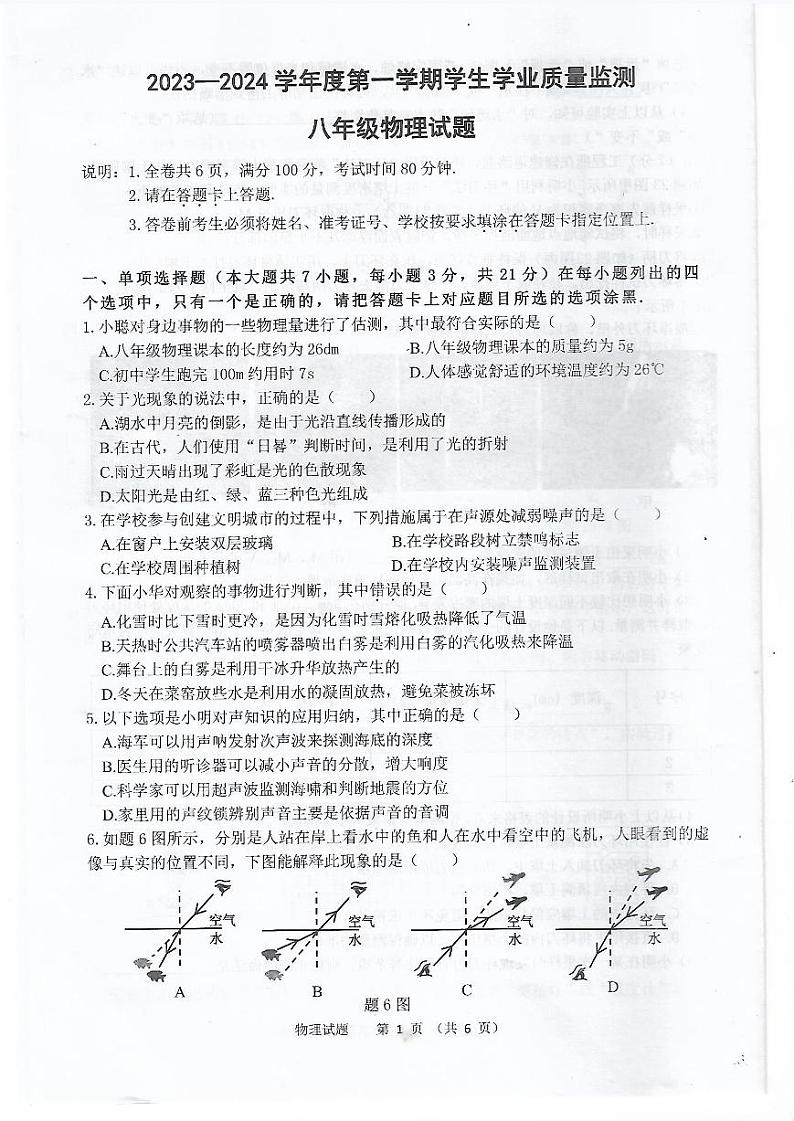 2023—2024 学年度第一学期学生学业质量监测
八年级物理试题
说明：1. 全卷共 6 页，满分 100 分，考试时间 80 分钟.
2. 请在答题卡上答题.
3. 答卷前考生必须将姓名、准考证号、学校按要求填涂在答题卡指定位置上.
一、单项选择题（本大题共 7 小题，每小题 3 分，共 21 分）在每小题列出的四
个选项中，只有一个是正确的，请把答题卡上对应题目所选的选项涂黑.
1. 小聪对身边事物的一些物理量进行了估测，其中最符合实际的是（ ）
A.八年级物理课本的长度约为 26dm B.八年级物理课本的质量约为 5g
C.初中学生跑完 100m 约用时 7s D.人体感觉舒适的环境温度约为 26℃
2. 关于光现象的说法中，正确的是（ ）
A.湖水中月亮的倒影，是由于光沿直线传播形成的
B.在古代，人们使用“日晷”判断时间，是利用了光的折射
C.雨过天晴出现了彩虹是光的色散现象
D.太阳光是由红、绿、蓝三种色光组成
3. 在学校参与创建文明城市的过程中，下列措施属于在声源处减弱噪声的是（ ）
A.在窗户上安装双层玻璃 B.在学校路段树立禁鸣标志
C.在学校周围种植树 D.在学校内安装噪声监测装置
4. 下面小华对观察的事物进行判断，其中错误的是（ ）
A.化雪时比下雪时更冷，是因为化雪时雪熔化吸热降低了气温
B.天热时公共汽车站的喷雾器喷出白雾是利用白雾的汽化吸热来降温
C.舞台上的白雾是利用干冰升华放热产生的
D.冬天在菜窑放些水是利用水的凝固放热，避免菜被冻坏
5. 以下选项是小明对声知识的应用归纳，其中正确的是（ ）
A.海军可以用声呐发射次声波来探测海底的深度
B.医生用的听诊器可以减小声音的分散，增大响度
C.科学家可以用超声波监测海啸和判断地震的方位
D.家里用的声纹锁辨别声音主要是依据声音的音调
6. 如题 6 图所示，分别是人站在岸上看水中的鱼和人在水中看空中的飞机，人眼看到的虚
像与真实的位置不同，下图能解释此现象的是（ ）
空气 空气 空气 空气
水 水 水 水
A B C D
题 6 图
物理试题 第 1 页 （共 6 页）